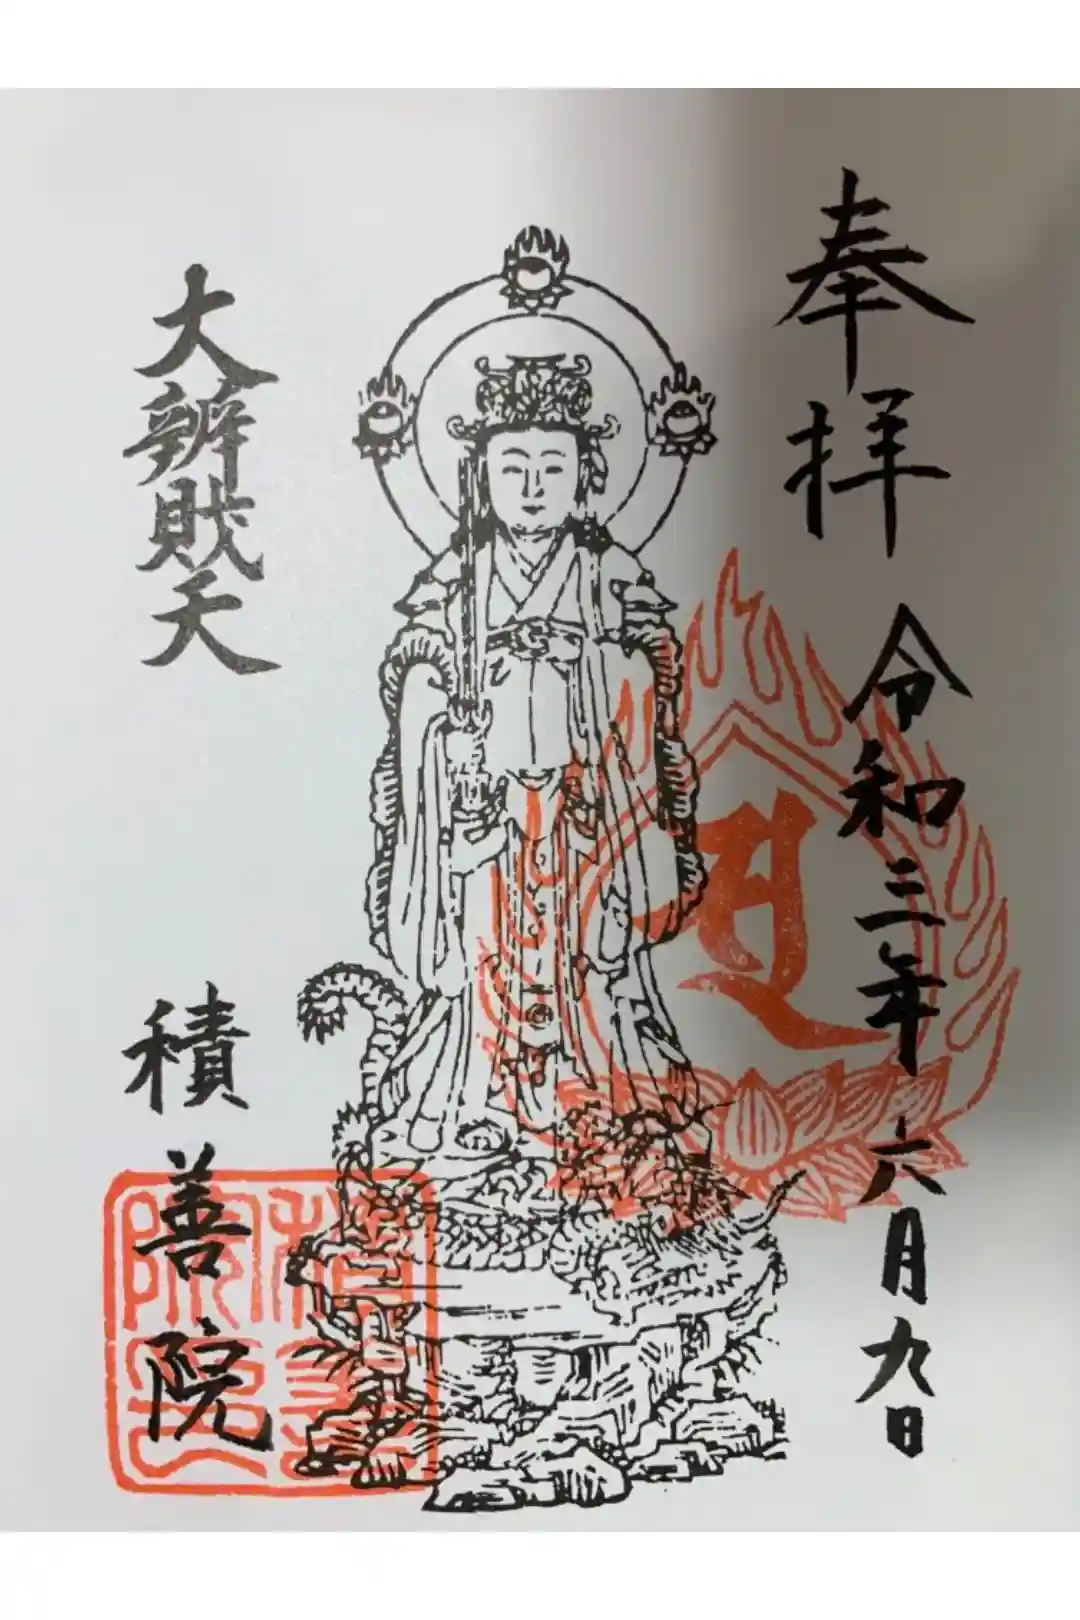 奉拝
令和三年六月九日
大辨財天
積善院
積善
院印